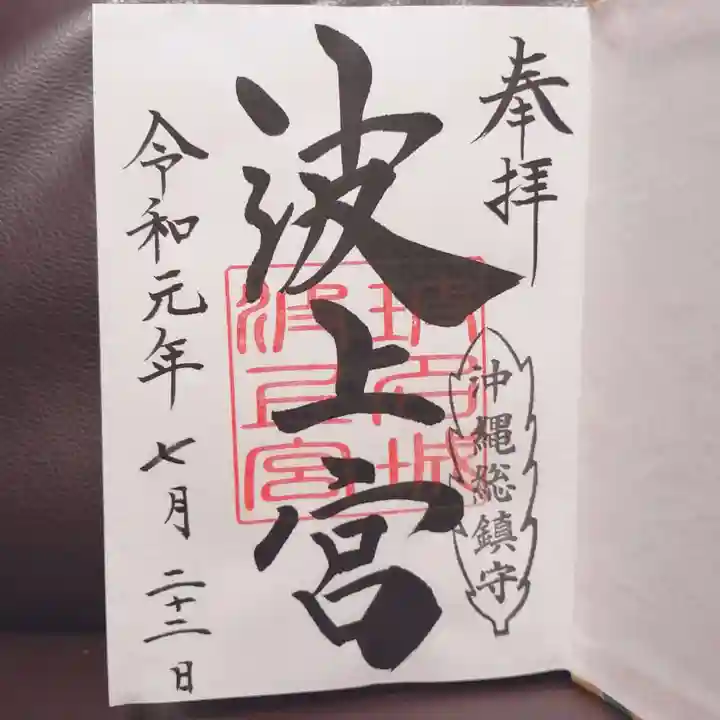 奉拝
沖縄総鎮守
波上宮
令和元年七月二十二日